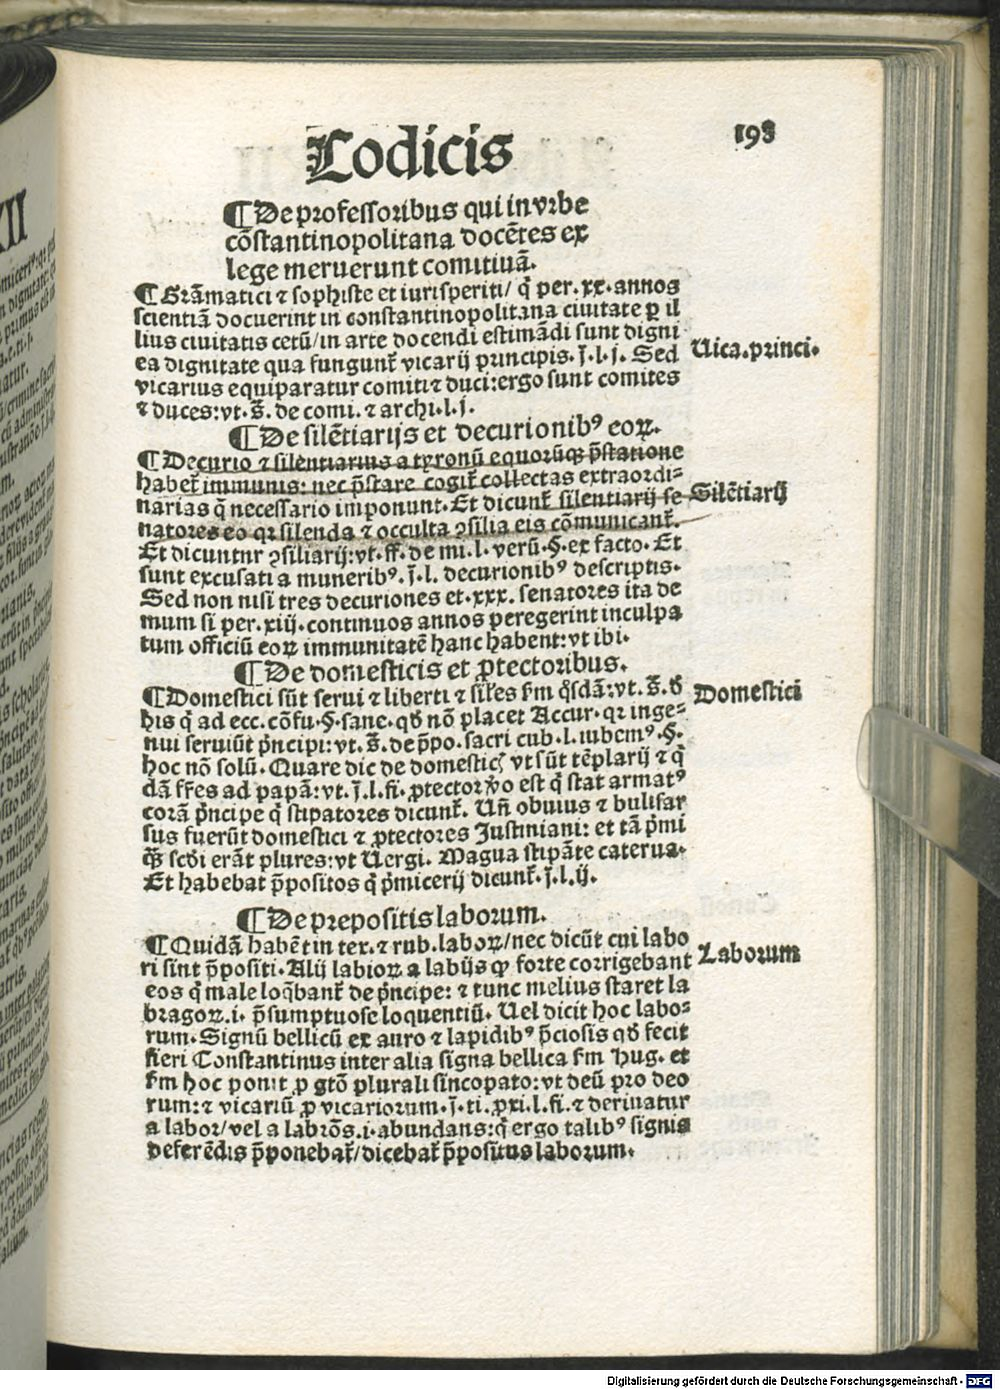 Codicis
198
¶ De professoribus qui in vrbe
cōstantinopolitana docētes ex
lege meruerunt comitiuā.
¶ Grāmatici ⁊ sophiste et iurisperiti/ q̄ per. xx. annos
scientiā docuerint in constantinopolitana ciuitate ꝑ il
lius ciuitatis cetū/in arte docendi estimādi sunt digni
ea dignitate qua fungunt᷑ vicarij principis. j̄. l. j. Sed
Uica.princi.
vicarius equiparatur comiti ⁊ duci:ergo sunt comites
⁊ duces:vt. s̄. de comi. ⁊ archi. l. j.
¶ De silētiarijs et decurionibꝰ eoꝝ.
¶ Decurio ⁊ silentiarius a tyronū equorūqꝫ p̄statione
habet᷑ immunis: nec p̄stare cogit᷑ collectas extraordi-
narias q̄ necessario imponunt. Et dicunt᷑ silentiarij se
Silētiarij
natores eo qꝛ silenda ⁊ occulta ↄsilia eis cōmunicant᷑.
Et dicuntur ↄsiliarij:vt. ff. de mi. l. verū. §. ex facto. Et
sunt excusati a muneribꝰ. j̄. l. decurionibꝰ descriptis.
Sed non nisi tres decuriones et. xxx. senatores ita de
mum si per. xiij. continuos annos peregerint inculpa
tum officiū eoꝝ immunitatē hanc habent: vt ibi.
¶ De domesticis et ꝓtectoribus.
¶ Domestici sūt serui ⁊ liberti ⁊ sil̄es s̄m q̄sdā: vt. s̄. đ
Domestici
his q̄ ad ecc. cōfu. §. sane. qđ nō placet Accur. qꝛ inge-
nui seruiūt p̄ncipi: vt. s̄. de p̄po. sacri cub. l. iubemꝰ. §.
hoc nō solū. Quare dic de domesticꝭ vt sūt tēplarij ⁊ q̄
dā ff̄es ad papā: vt. j̄. l. fi. ꝓtector v̄o est q̄ stat armatꝰ
corā p̄ncipe q̄ stipatores dicunt᷑. Un̄ obuius ⁊ bulisar
sus fuerūt domestici ⁊ ꝓtectores Justiniani: et tā p̄mi
qꝫ̄ scđi erāt plures: vt Uergi. Magua stipāte caterua.
Et habebat p̄positos q̄ p̄micerij dicunt᷑. j̄. l. ij.
¶ De prepositis laborum.
¶ Quidā habēt in tex. ⁊ rub. laboꝝ/nec dicūt cui labo
Laborum
ri sint p̄positi. Alij labioꝝ a labijs ꝙ forte corrigebant
eos q̄ male loq̄bant᷑ de p̄ncipe: ⁊ tunc melius staret la
bragoꝝ. i. p̄sumptuose loquentiū. Uel dicit hoc labo-
rum. Signū bellicū ex auro ⁊ lapidibꝰ p̄ciosis qđ fecit
fieri Constantinus inter alia signa bellica s̄m Hug. et
s̄m hoc ponit ꝓ gtō plurali sincopato: vt deū pro deo
rum: ⁊ vicariū ꝓ vicariorum. j̄. ti. ꝓxi. l. fi. ⁊ deriuatur
a labor/vel a labrōs. i. abundans: q̄ ergo talibꝰ signis
deferēdis p̄ponebat᷑/dicebat᷑ p̄positus laborum.
Digitalisierung gefördert durch die Deutsche Forschungsgemeinschaft - DFG